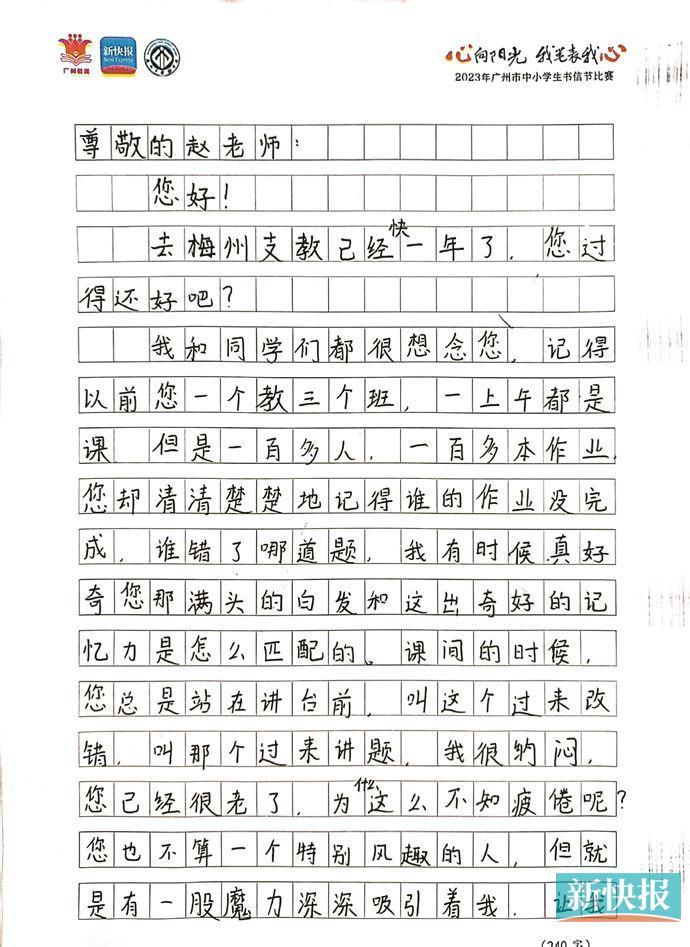 广州教育
新快报
New Express
心向阳光 我笔表我心
2023年广州市中小学生书信节比赛
尊敬的赵老师：
您好！
去梅州支教已经快一年了，您过
得还好吧？
我和同学们都很想念您，记得
以前您一个教三个班，一上午都是
课 但是一百多人，一百多本作业，
您却清清楚楚地记得谁的作业没完
成，谁错了哪道题，我有时候真好
奇您那满头的白发和这出奇好的记
忆力是怎么匹配的。课间的时候，
您总是站在讲台前，叫这个过来改
错，叫那个过来讲题，我很纳闷，
您已经很老了，为什么这么不知疲倦呢？
您也不算一个特别风趣的人，但就
是有一股魔力深深吸引着我，让我
新快报
(240字)